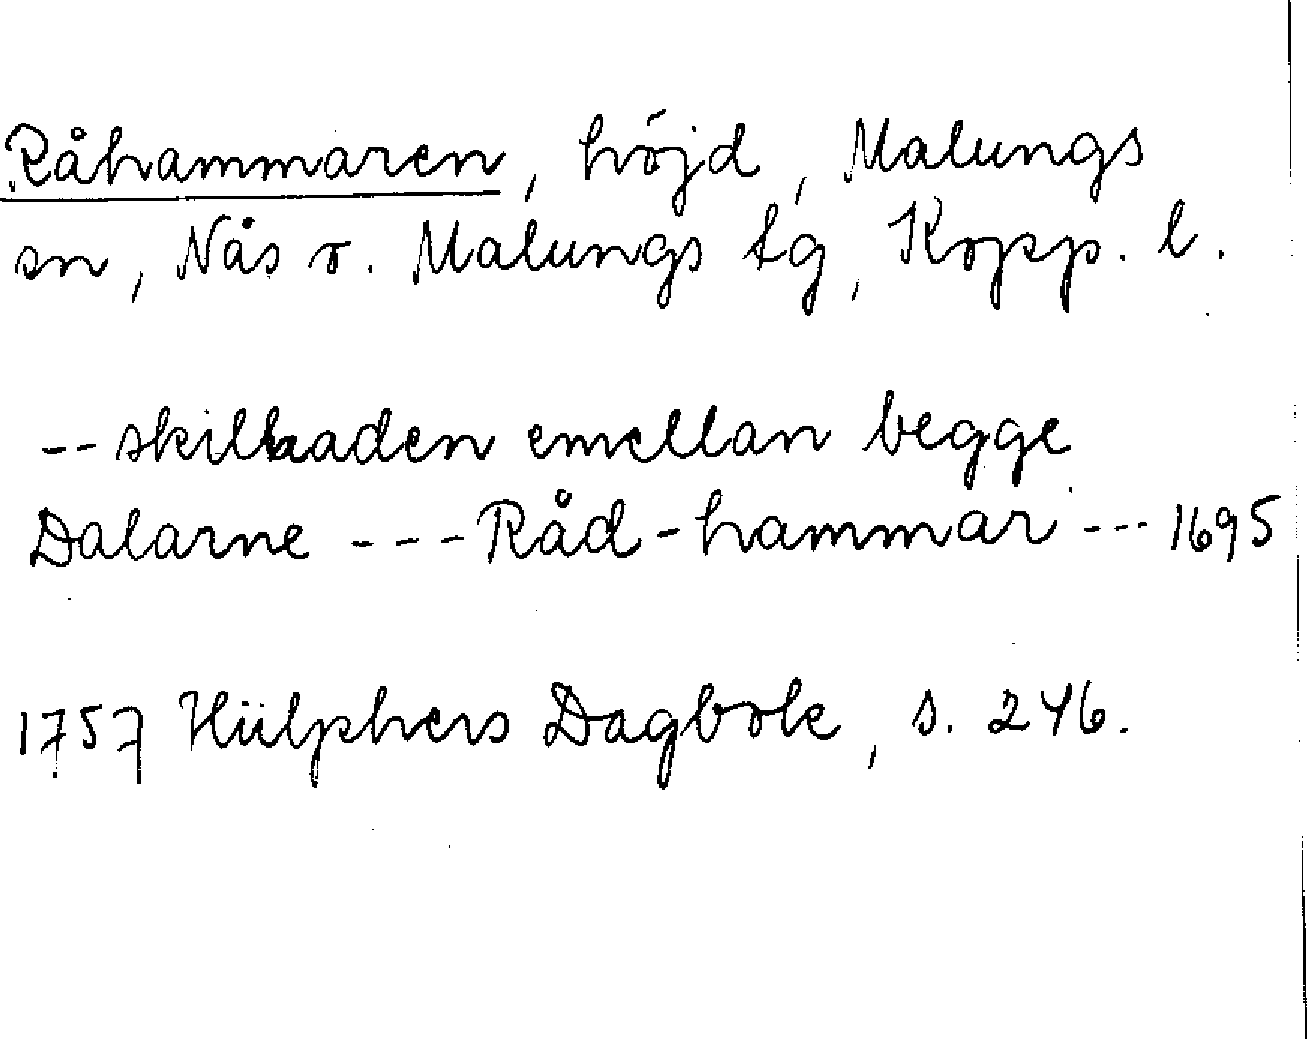 Råhammaren, höjd, Malungs
sn, Nås o. Malungs tg, Kopp. l.
-- skillnaden emellan begge
Dalarne --- Råd-hammar --- 1695
1757 Hülphers Dagbok, s. 246.